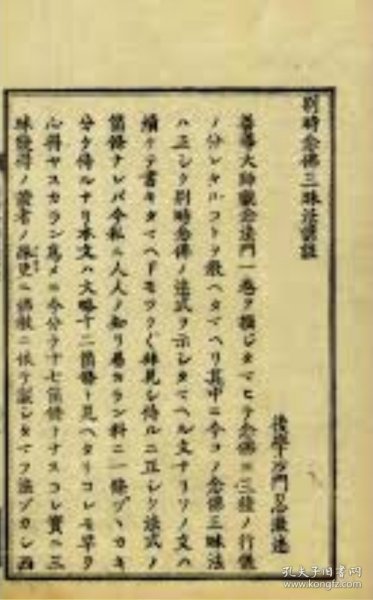 別時念佛三昧法諺註
後學沙門忍澂述
善導大師觀念法門一卷ヲ撰ジタマヒテ念佛ニ三種ノ行儀
ノ分レタルコトヲ教ヘタマヘリ其中ニ今コノ念佛三昧法
ハ正シク別時念佛ノ法式ヲ示シタマヘル文ナリソノ文ハ
續ケテ書キタマヘドモツクヅク拜見シ侍ルニ正シク法式ノ
箇條ナレバ今私ニ人人ノ知リ易カラン料ニ一條ヅヽカキ
分ケ侍ルナリ本文ハ大略十二箇條ト見ヘタリコレモ早ク
心得ヤスカラン爲メニ今分テ十七箇條トナスコレ實ヘ三
昧發得ノ聖者ノ佛敎ニ依テ誡シタマフ法
孔夫子旧书网